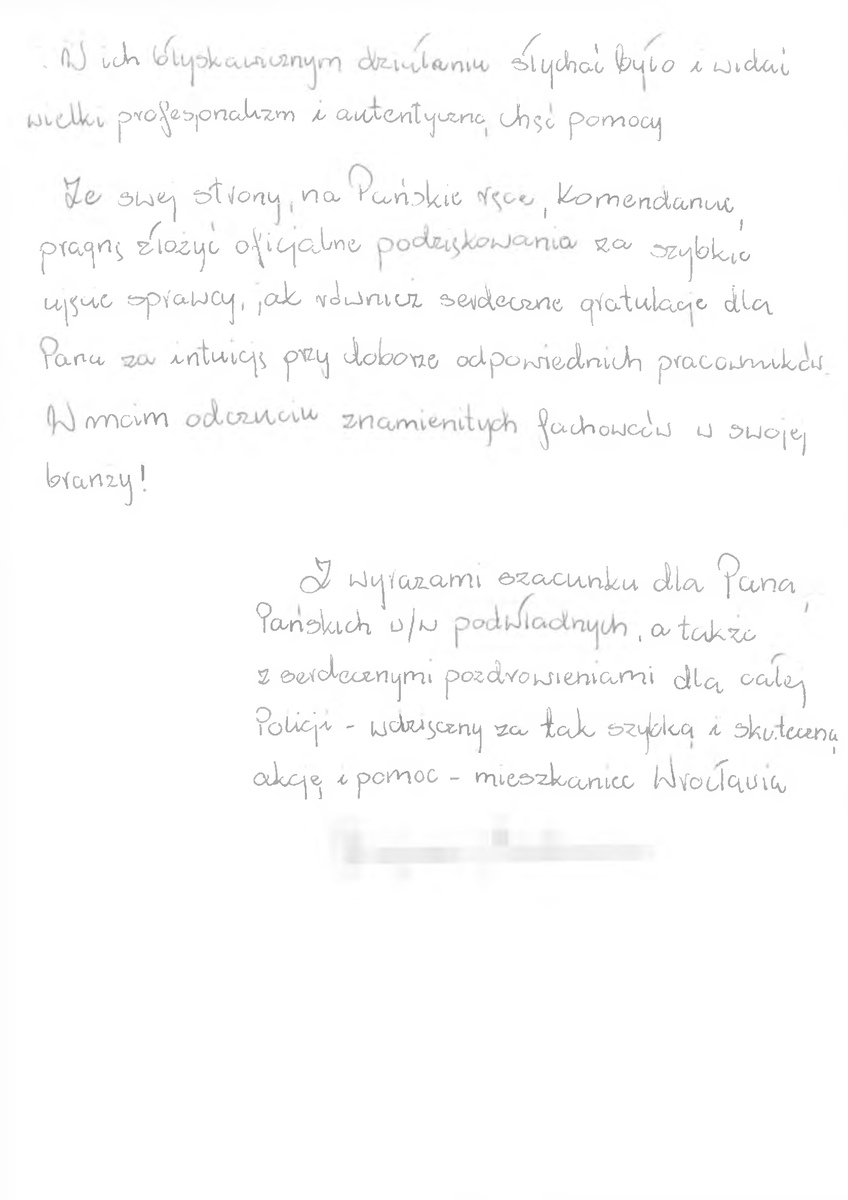 W ich błyskawicznym działaniu słychać było i widać
wielki profesjonalizm i autentyczną chęć pomocy
Ze swej strony, na Pańskie ręce, Komendancie,
pragnę złożyć oficjalne podziękowania za szybkie
ujęcie sprawcy, jak również serdeczne gratulacje dla
Pana za intuicję przy doborze odpowiednich pracowników.
W moim odczuciu znamienitych fachowców w swojej
branży!
Z wyrazami szacunku dla Pana,
Pańskich w/w podwładnych, a także
z serdecznymi pozdrowieniami dla całej
Policji - wdzięczny za tak szybką i skuteczną
akcję i pomoc - mieszkaniec Wrocławia